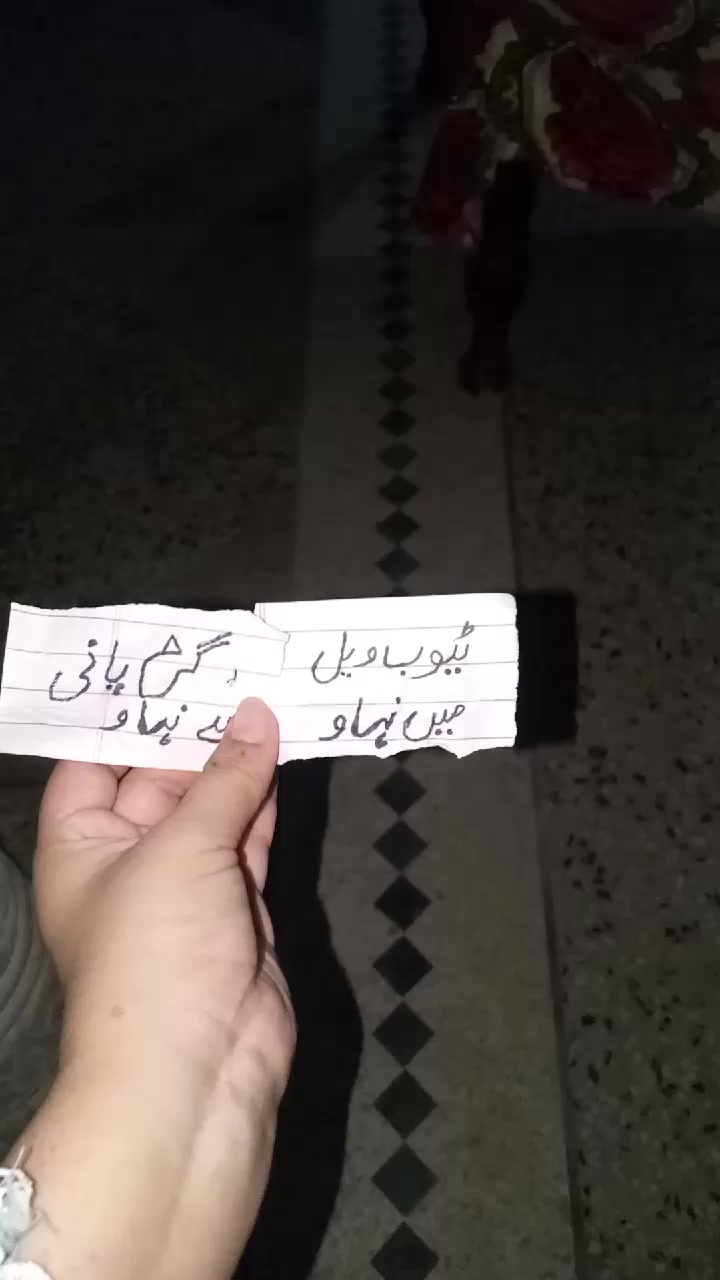 ٹیوب ویل
میں نہاو
گرم پانی
سے نہاو